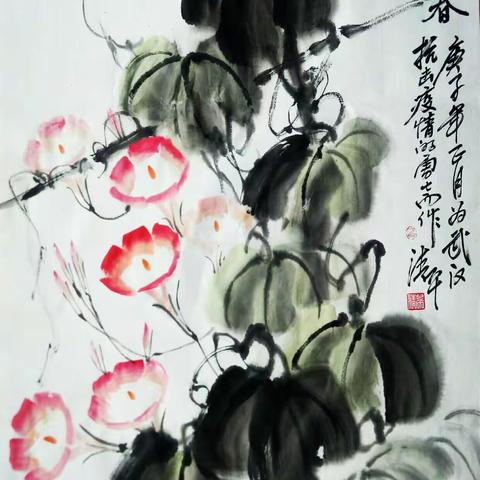 春
庚子年正月为武汉
抗击疫情的勇士而作